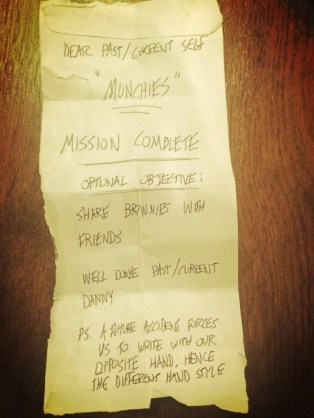 DEAR PAST/CURRENT SELF
"MUNCHIES"
MISSION COMPLETE
OPTIONAL OBJECTIVE:
SHARE BROWNIES WITH
FRIENDS
WELL DONE PAST/CURRENT
DANNY
PS. A FUTURE ACCIDENT FORCES
US TO WRITE WITH OUR
OPPOSITE HAND, HENCE
THE DIFFERENT HAND STYLE